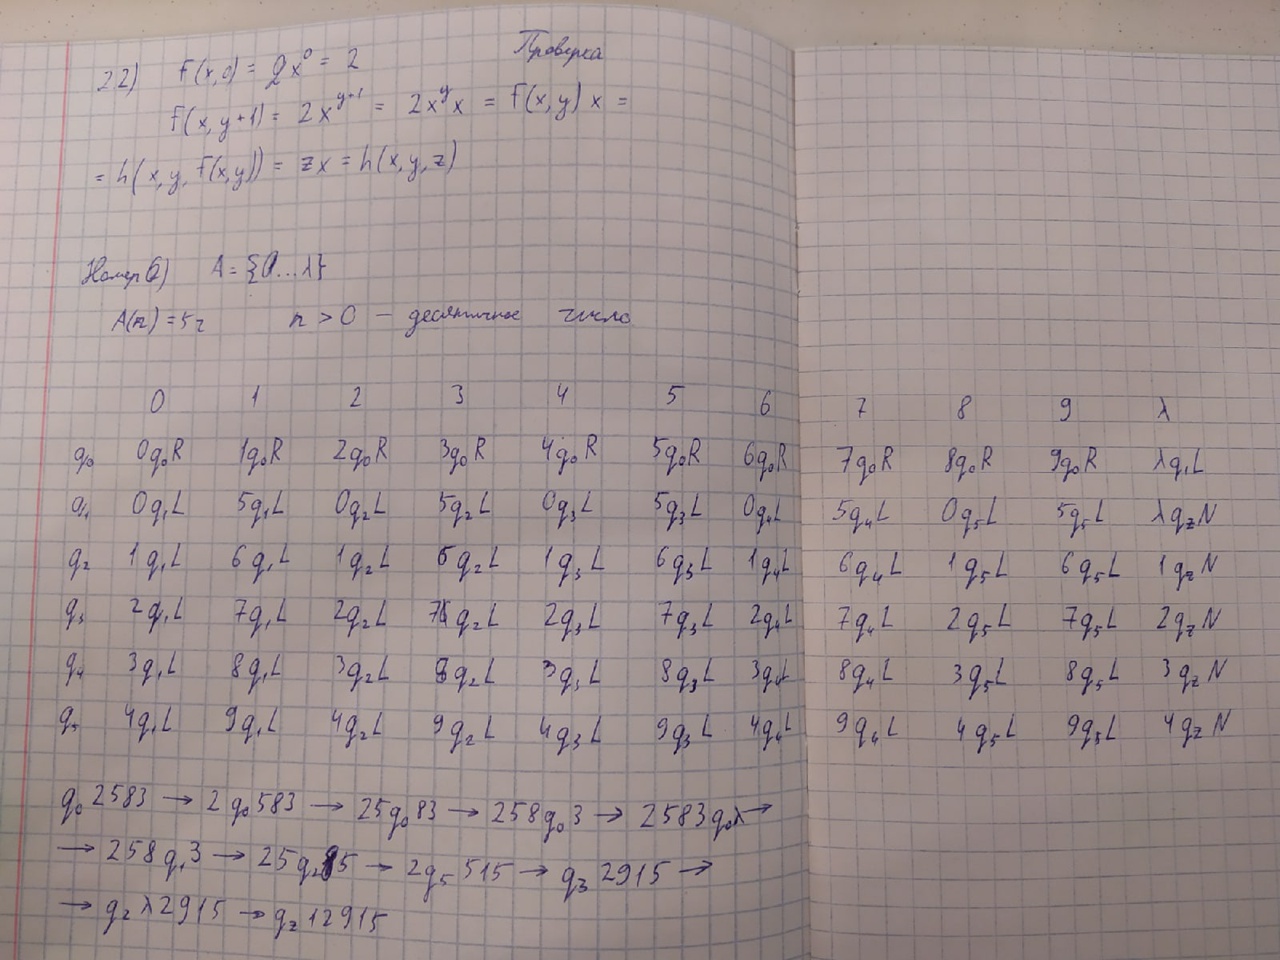 Проверка
22) F(x,0) = 2x⁰ = 2
F(x,y+1) = 2x^{y+1} = 2x^y x = F(x,y) x =
= h(x,y,F(x,y)) = zx = h(x,y,z)
Номер 6) A = {0...λ}
A(n) = 5n n > 0 – десятичное число
0 1 2 3 4 5 6 7 8 9 λ
q₀ 0q₀R 1q₀R 2q₀R 3q₀R 4q₀R 5q₀R 6q₀R 7q₀R 8q₀R 9q₀R λq₁L
q₁ 0q₁L 5q₁L 0q₂L 5q₂L 0q₃L 5q₃L 0q₄L 5q₄L 0q₅L 5q₅L λq_zN
q₂ 1q₁L 6q₁L 1q₂L 6q₂L 1q₃L 6q₃L 1q₄L 6q₄L 1q₅L 6q₅L 1q_zN
q₃ 2q₁L 7q₁L 2q₂L 7q₂L 2q₃L 7q₃L 2q₄L 7q₄L 2q₅L 7q₅L 2q_zN
q₄ 3q₁L 8q₁L 3q₂L 8q₂L 3q₃L 8q₃L 3q₄L 8q₄L 3q₅L 8q₅L 3q_zN
q₅ 4q₁L 9q₁L 4q₂L 9q₂L 4q₃L 9q₃L 4q₄L 9q₄L 4q₅L 9q₅L 4q_zN
q₀2583 → 2q₀583 → 25q₀83 → 258q₀3 → 2583q₀λ →
→ 258q₁3 → 25q₂85 → 2q₅515 → q₃2915 →
→ q₂λ2915 → q_z12915